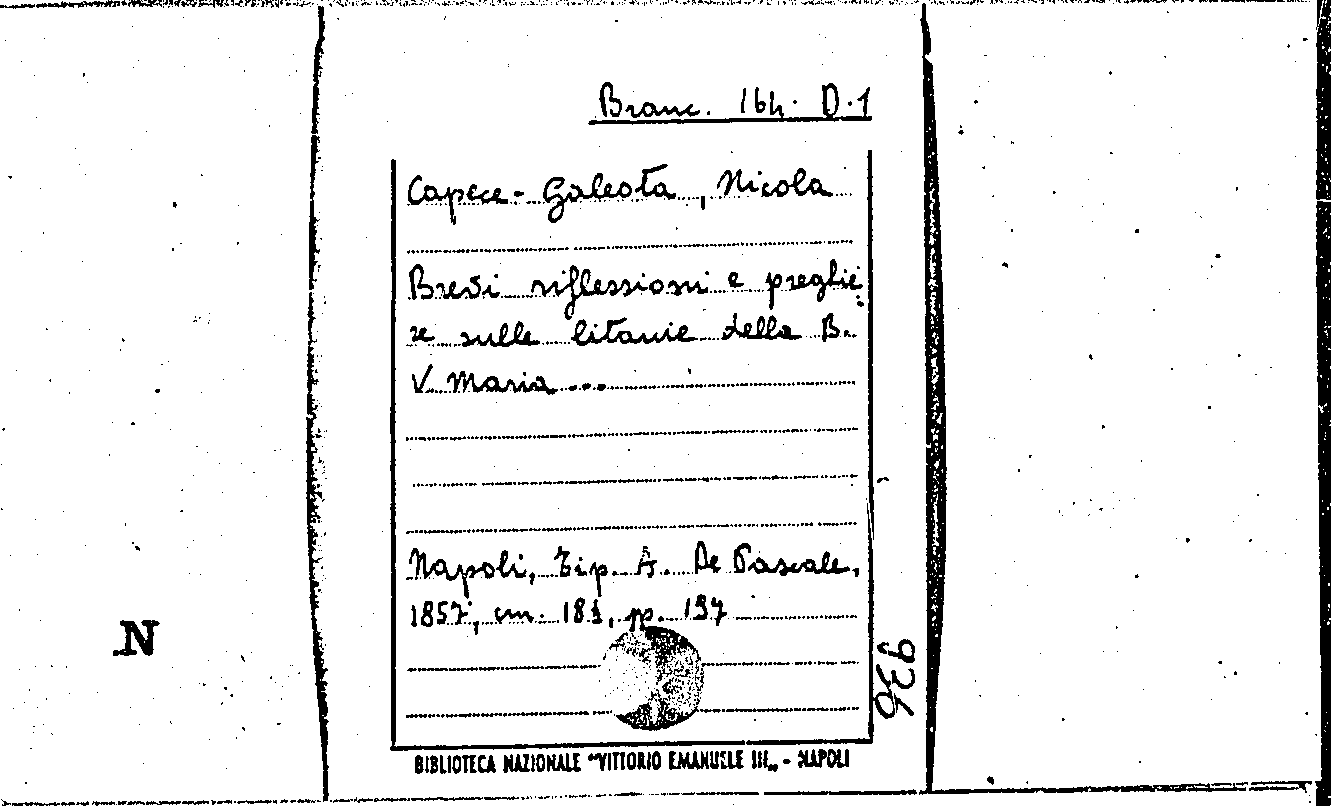 Branc. 164. D.1
Capece-Galeota, Nicola
Brevi riflessioni e preghie
re sulle litanie della B.
V. Maria ...
Napoli, Tip. A. De Pascale,
1857, cm. 18½, pp. 197
N
936
BIBLIOTECA NAZIONALE "VITTORIO EMANUELE III„ - NAPOLI